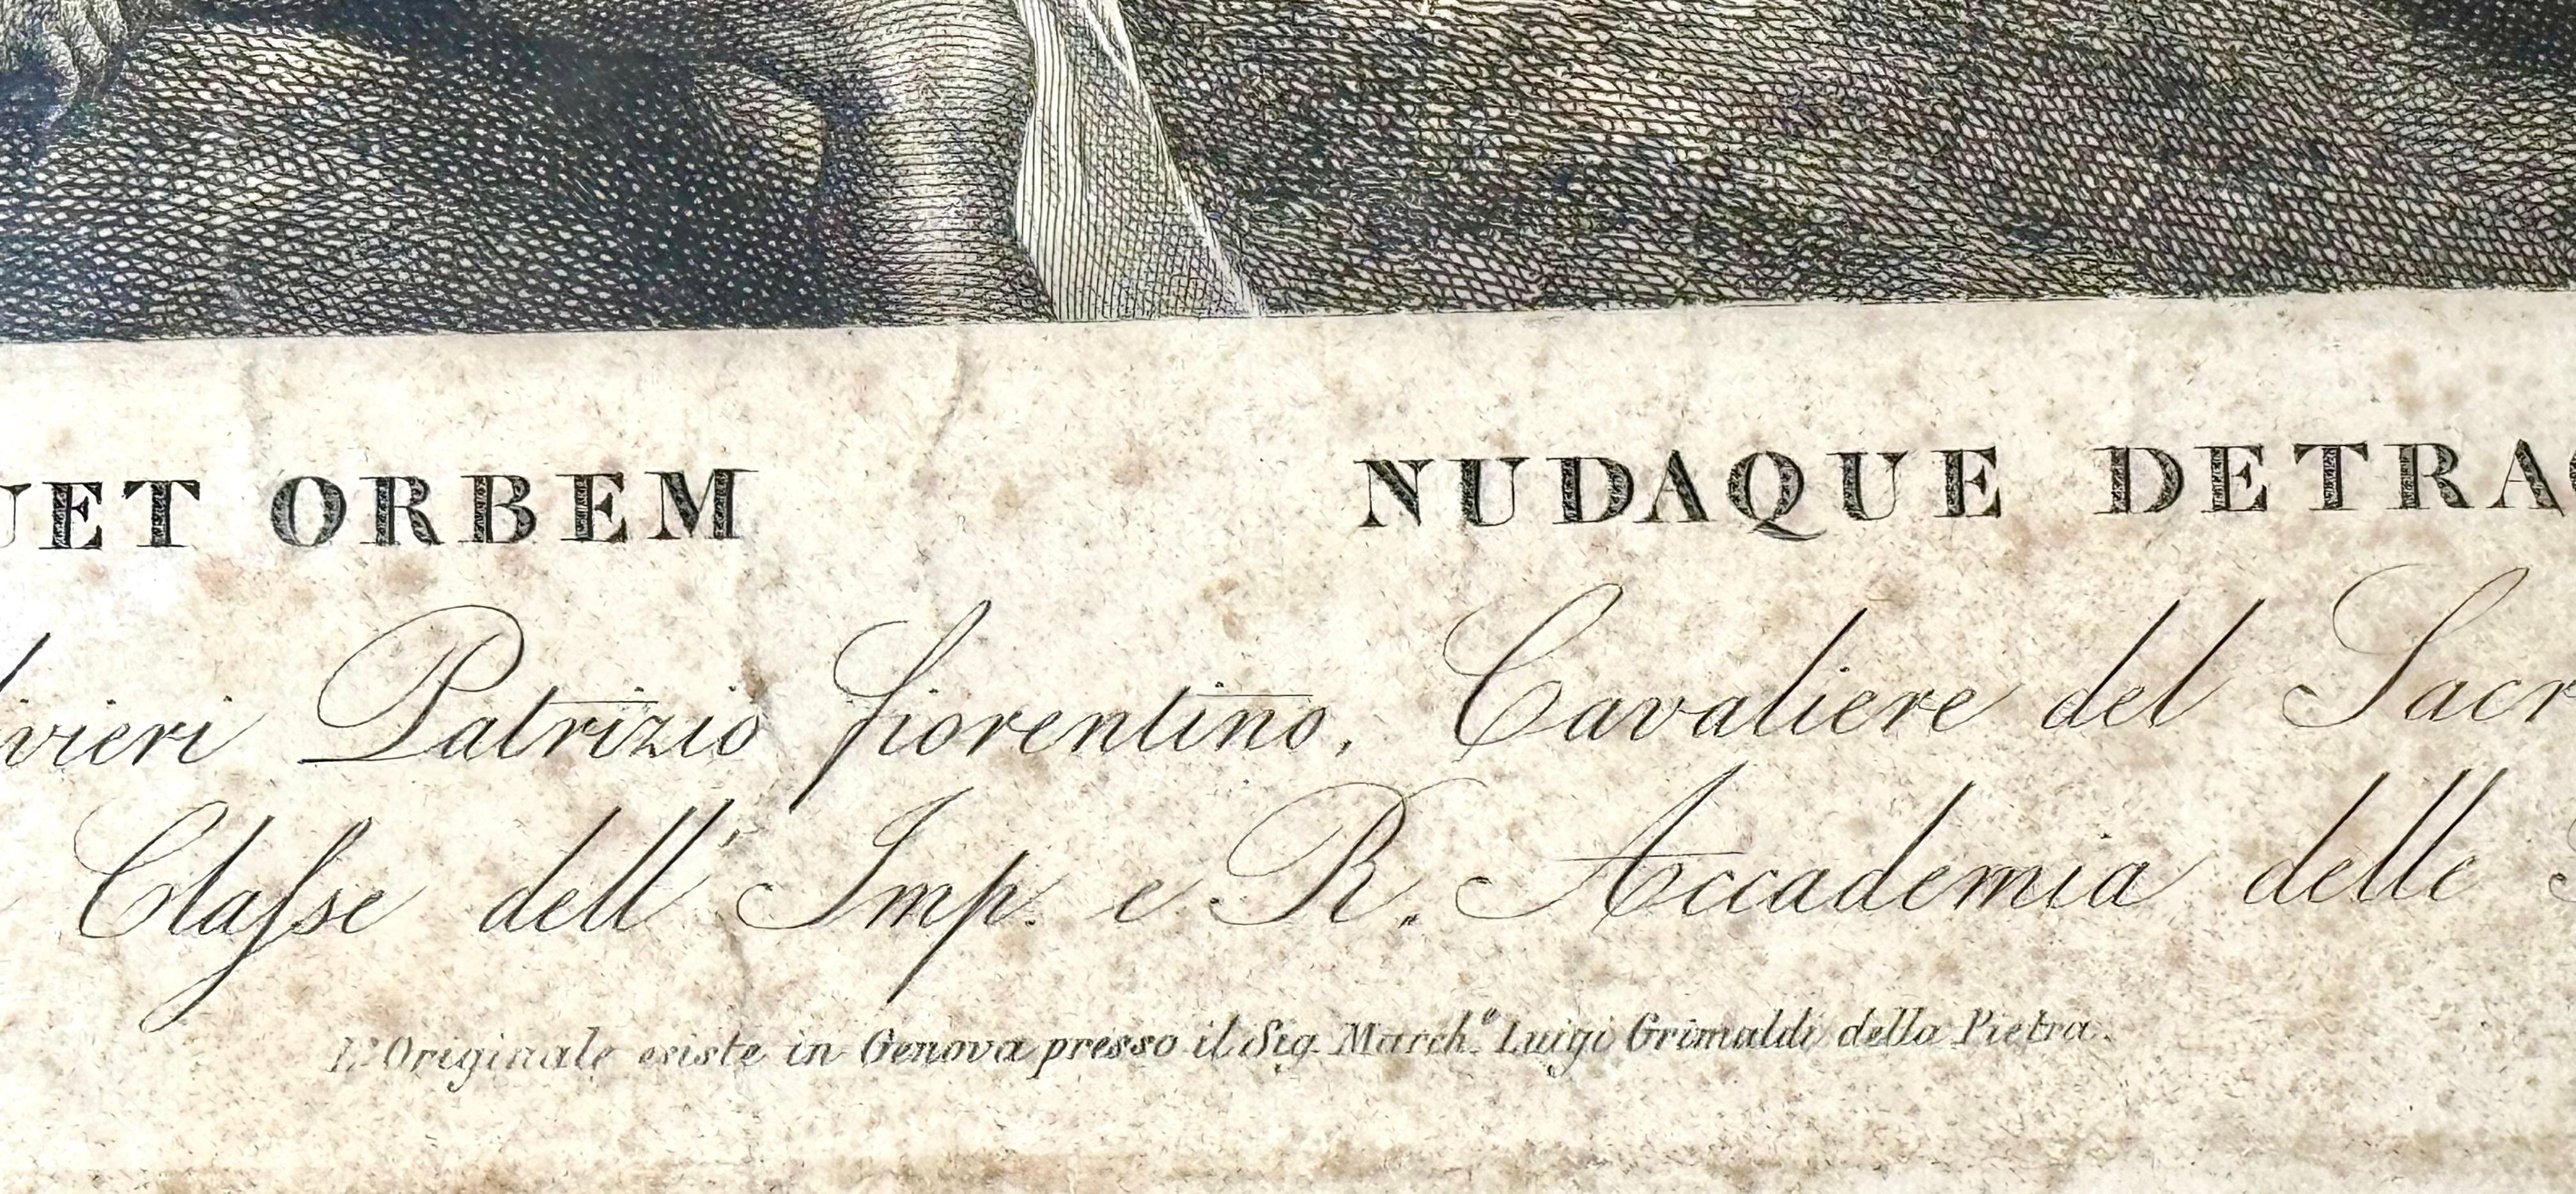 UET ORBEM NUDAQUE DETRAC
ivieri Patrizio fiorentino, Cavaliere del Sacr
Claſse dell' Imp. e R. Accademia delle
L'Originale esiste in Genova presso il Sig. March.e Luigi Grimaldi della Pietra.